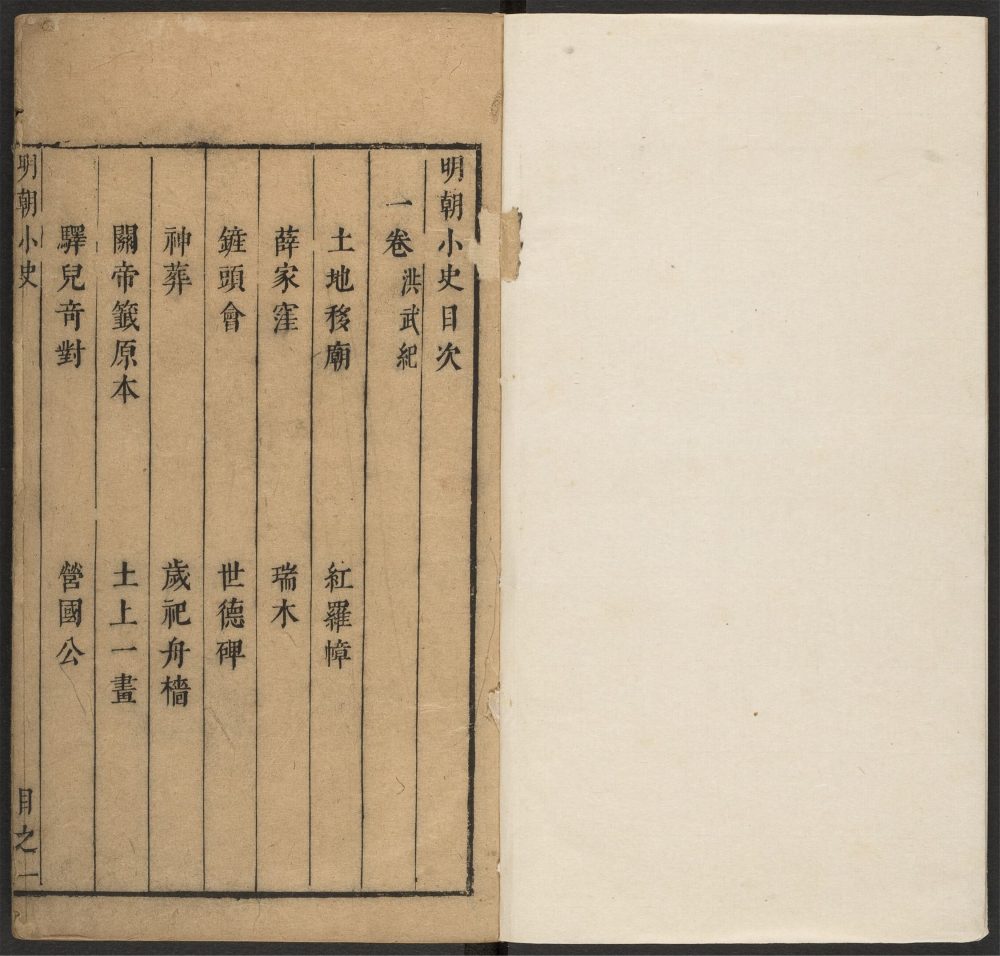 明朝小史目次
一卷 洪武紀
土地移廟 紅羅幛
薛家窪 瑞木
鏟頭會 世德碑
神葬 歲祀舟檣
關帝籤原本 土上一畫
驛兒奇對 營國公
明朝小史 目之一